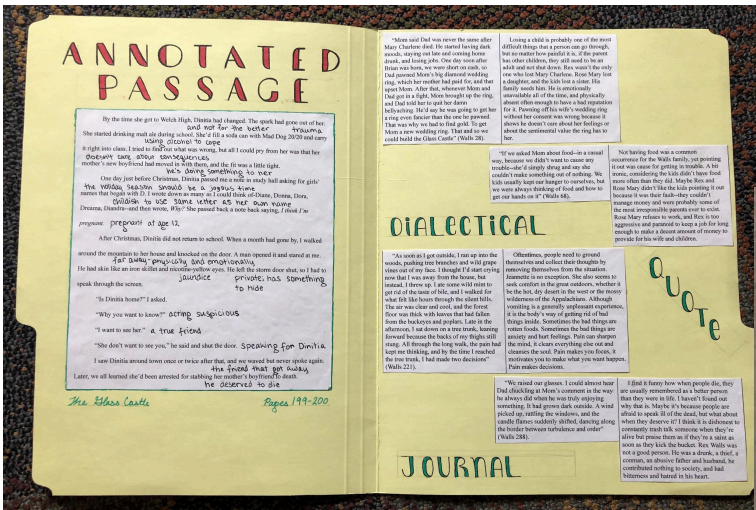 ANNOTATED
PASSAGE
By the time she got to Welch High, Dinitia had changed. The spark had gone out of her.
and not for the better trauma
She started drinking malt ale during school. She'd fill a soda can with Mad Dog 20/20 and carry
using alcohol to cope
it right into class. I tried to find out what was wrong, but all I could pry from her was that her
doesn't care about consequences
mother's new boyfriend had moved in with them, and the fit was a little tight.
he's doing something to her
One day just before Christmas, Dinitia passed me a note in study hall asking for girls'
the holiday season should be a joyous time
names that began with D. I wrote down as many as I could think of-Diane, Donna, Dora,
childish to use same letter as her own name
Dreama, Diandra--and then wrote, Why? She passed back a note back saying, I think I'm
pregnant. pregnant at age 12
After Christmas, Dinitia did not return to school. When a month had gone by, I walked
around the mountain to her house and knocked on the door. A man opened it and stared at me.
far away-physically and emotionally
He had skin like an iron skillet and nicotine-yellow eyes. He left the storm door shut, so I had to
jaundice private; has something
speak through the screen. to hide
"Is Dinitia home?" I asked.
"Why you want to know?" acting suspicious
"I want to see her." a true friend
"She don't want to see you," he said and shut the door. speaking for Dinitia
I saw Dinitia around town once or twice after that, and we waved but never spoke again.
the friend that got away
Later, we all learned she'd been arrested for stabbing her mother's boyfriend to death.
he deserved to die
The Glass Castle Pages 199-200
"Mom said Dad was never the same after
Mary Charlene died. He started having dark
moods, staying out late and coming home
drunk, and losing jobs. One day soon after
Brian was born, we were short on cash, so
Dad pawned Mom's big diamond wedding
ring, which her mother had paid for, and that
upset Mom. After that, whenever Mom and
Dad got in a fight, Mom brought up the ring,
and Dad told her to quit her damn
bellyaching. He'd say he was going to get her
a ring even fancier than the one he pawned.
That was why we had to find gold. To get
Mom a new wedding ring. That and so we
could build the Glass Castle" (Walls 28).
Losing a child is probably one of the most
difficult things that a person can go through,
but no matter how painful it is, if the parent
has other children, they still need to be an
adult and not shut down. Rex wasn't the only
one who lost Mary Charlene. Rose Mary lost
a daughter, and the kids lost a sister. His
family needs him. He is emotionally
unavailable all of the time, and physically
absent often enough to have a bad reputation
for it. Pawning off his wife's wedding ring
without her consent was wrong because it
shows he doesn't care about her feelings or
about the sentimental value the ring has to
her.
"If we asked Mom about food--in a casual
way, because we didn't want to cause any
trouble--she'd simply shrug and say she
couldn't make something out of nothing. We
kids usually kept our hunger to ourselves, but
we were always thinking of food and how to
get our hands on it" (Walls 68).
Not having food was a common
occurrence for the Walls family, yet pointing
it out was cause for getting in trouble. A bit
ironic, considering the kids didn't have food
more often than they did. Maybe Rex and
Rose Mary didn't like the kids pointing it out
because it was their fault--they couldn't
manage money and were probably some of
the most irresponsible parents ever to exist.
Rose Mary refuses to work, and Rex is too
aggressive and paranoid to keep a job for long
enough to make a decent amount of money to
provide for his wife and children.
DIALECTICAL
QUOTE
"As soon as I got outside, I ran up into the
woods, pushing tree branches and wild grape
vines out of my face. I thought I'd start crying
now that I was away from the house, but
instead, I threw up. I ate some wild mint to
get rid of the taste of bile, and I walked for
what felt like hours through the silent hills.
The air was clear and cool, and the forest
floor was thick with leaves that had fallen
from the buckeyes and poplars. Late in the
afternoon, I sat down on a tree trunk, leaning
forward because the backs of my thighs still
stung. All through the long walk, the pain had
kept me thinking, and by the time I reached
the tree trunk, I had made two decisions"
(Walls 221).
Oftentimes, people need to ground
themselves and collect their thoughts by
removing themselves from the situation.
Jeannette is no exception. She also seems to
seek comfort in the great outdoors, whether it
be the hot, dry desert in the west or the mossy
wilderness of the Appalachians. Although
vomiting is a generally unpleasant experience,
it is the body's way of getting rid of bad
things inside. Sometimes the bad things are
rotten foods. Sometimes the bad things are
anxiety and hurt feelings. Pain can sharpen
the mind, it clears everything else out and
cleanses the soul. Pain makes you focus, it
motivates you to make what you want happen.
Pain makes decisions.
"We raised our glasses. I could almost hear
Dad chuckling at Mom's comment in the way
he always did when he was truly enjoying
something. It had grown dark outside. A wind
picked up, rattling the windows, and the
candle flames suddenly shifted, dancing along
the border between turbulence and order"
(Walls 288).
I find it funny how when people die, they
are usually remembered as a better person
than they were in life. I haven't found out
why that is. Maybe it's because people are
afraid to speak ill of the dead, but what about
when they deserve it? I think it is dishonest to
constantly trash talk someone when they're
alive but praise them as if they're a saint as
soon as they kick the bucket. Rex Walls was
not a good person. He was a drunk, a thief, a
conman, an abusive father and husband, he
contributed nothing to society, and had
bitterness and hatred in his heart.
JOURNAL